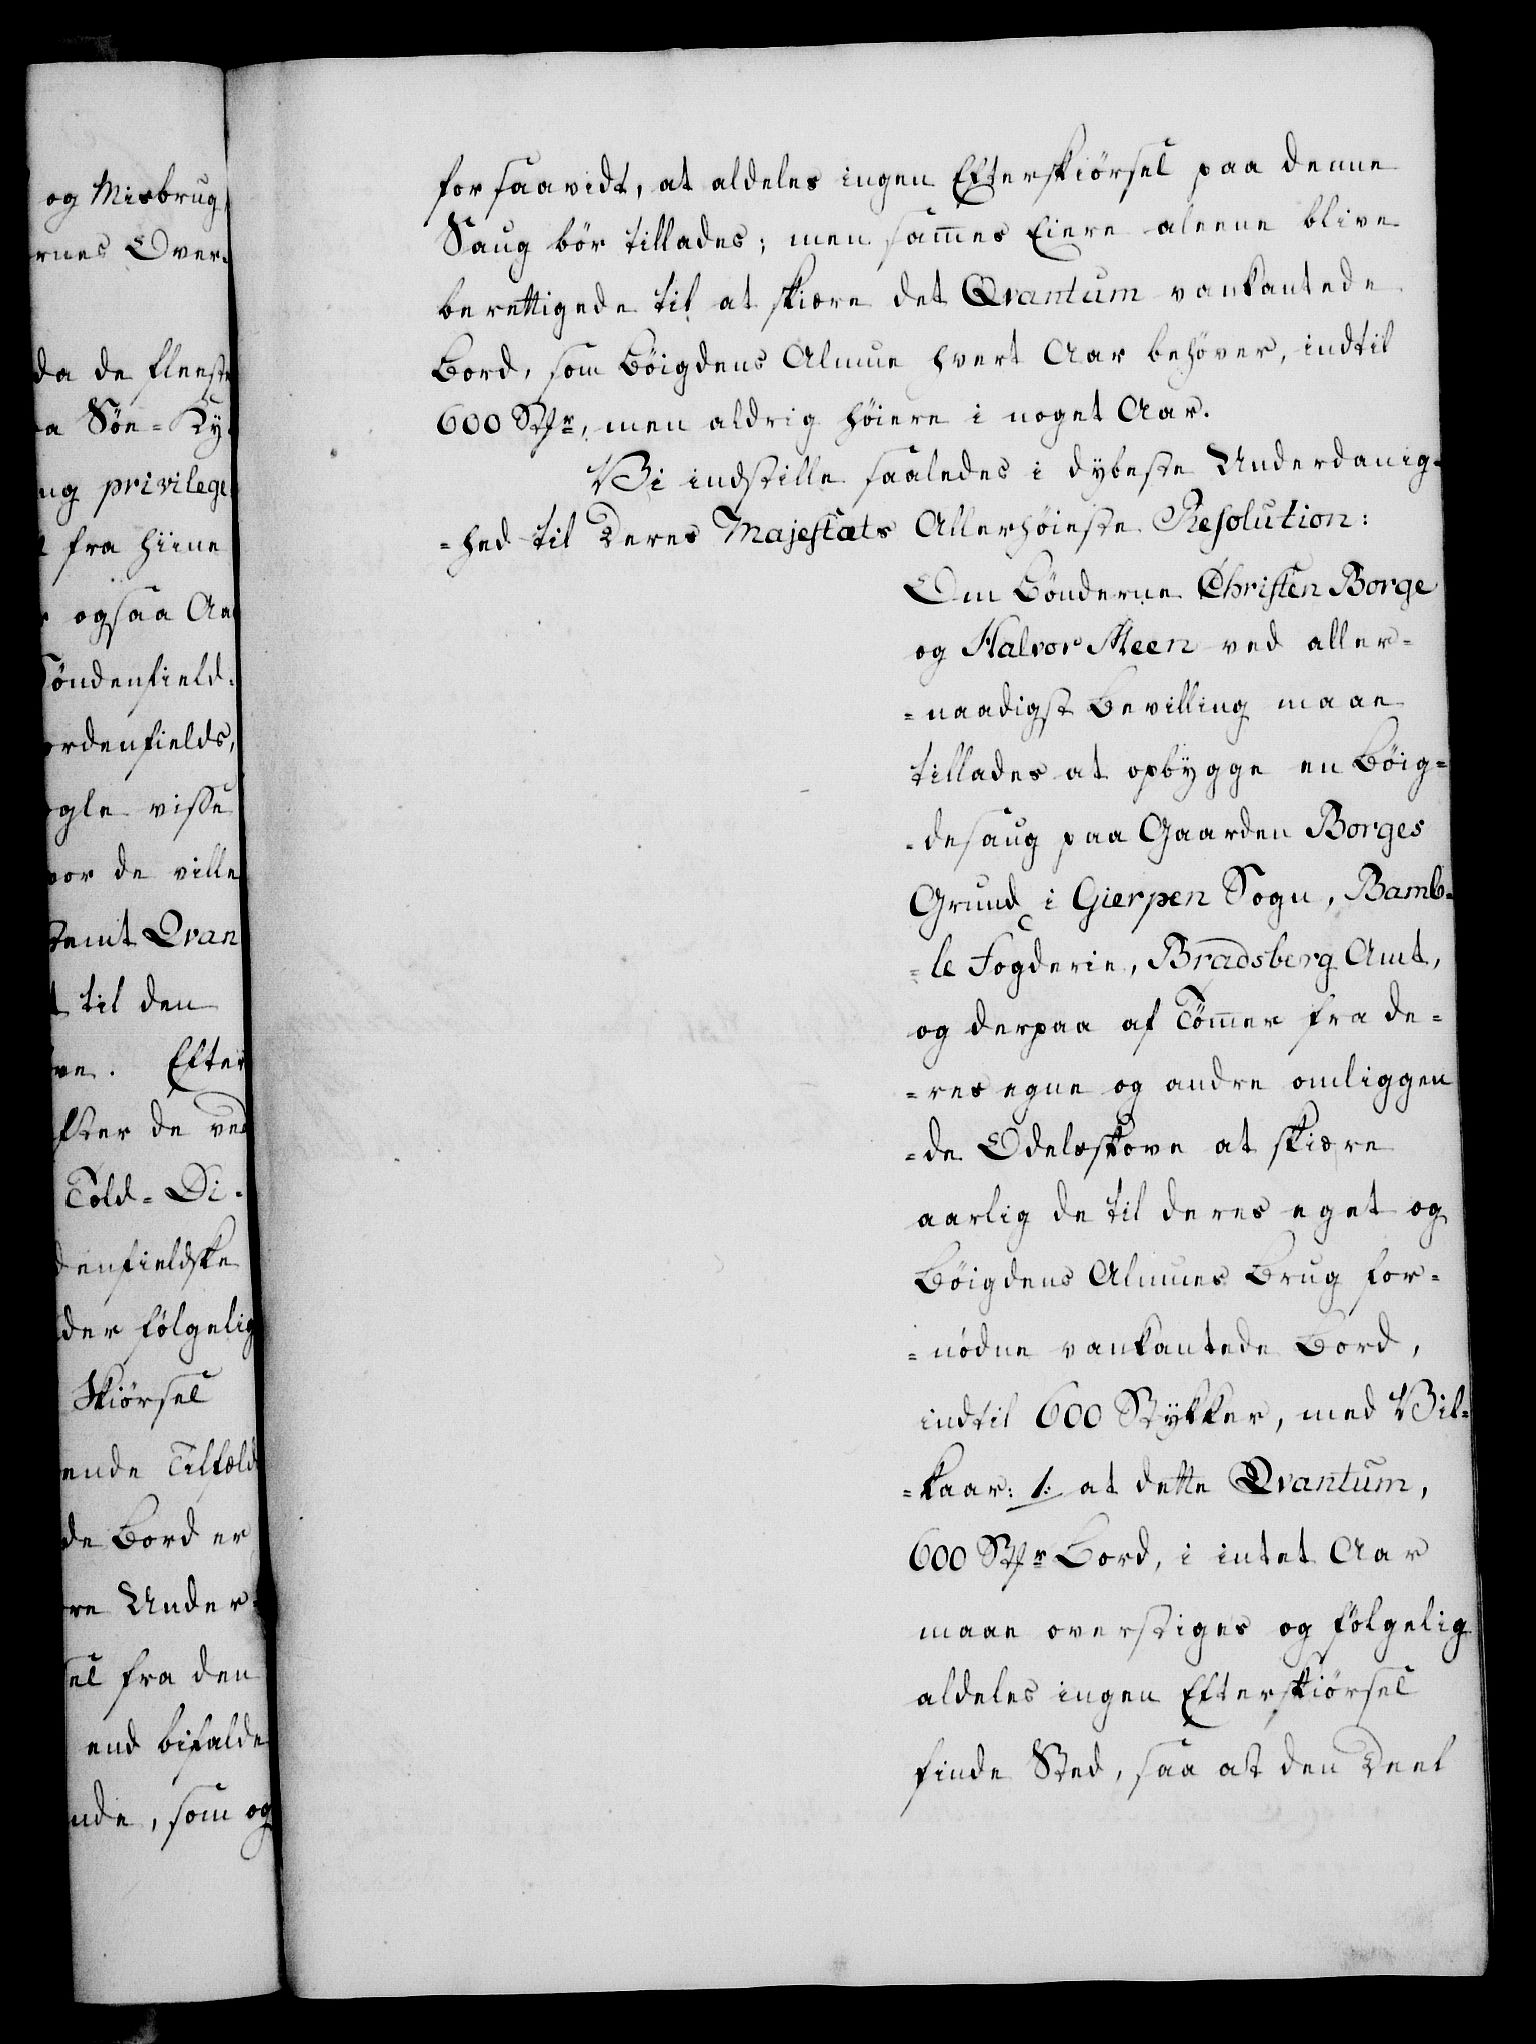 og Misbrug
rnes Over-
da de fleeste
a Söe-Ky-
ug privilege
fra hiine
ogsaa An
Söndenfield-
ordenfields,
ogle visse
vor de ville
stemt Qvan
til den
ve. Efter
fter de ved
Told-Di-
denfieldske
der fölgelig
Skiörsel
ende Tilfæld
de Bord er
re Under-
sel fra den
end bifalde
nde, som og
for saavidt, at aldeles ingen Efterskiörsel paa denne
Saug bör tillades; men sam̄es Eiere aleene blive
berettigede til at skiære det Qvantum vankantede
Bord, som Böigdens Almue hvert Aar behöver, indtil
600 Stkr, men aldrig höiere i noget Aar.
Vi indstille saaledes i dybeste Underdanig-
=hed til Deres Majestæts Allerhöieste Resolution:
Om Bönderne Christen Borge
og Halvor Meen ved aller=
=naadigst Bevilling maae
tillades at opbygge en Böig=
=desaug paa Gaarden Borges
Grund i Gierpen Sogn, Bamb=
=le Fogderie, Bradsberg Amt,
og derpaa af Töm̄er fra de=
=res egne og andre omliggen
=de Odelsskove at skiære
aarlig de til deres eget og
Böigdens Almues Brug for=
=nödne vankantede Bord,
indtil 600 Stykker, med Vil=
=kaar: 1: at dette Qvantum,
600 Stkr Bord, i intet Aar
maae overstiges og fölgelig
aldeles ingen Efterskiörsel
finde Sted, saa at den Deel